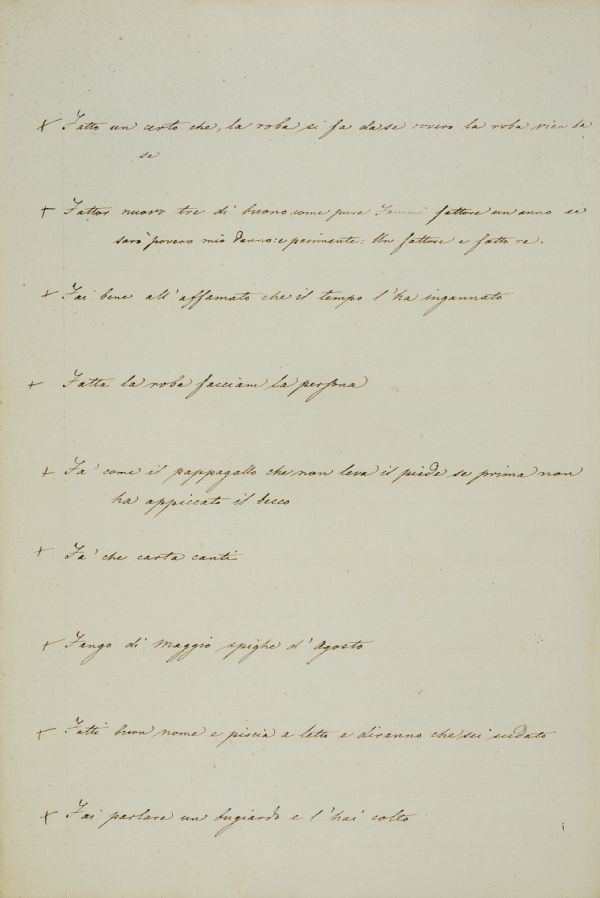 + Fatto un certo che, la roba si fa da se ovvero la roba vien da
se
+ Fattor nuovo tre dì buono: come pure Fammi fattore un'anno se
sarò povero mio danno: e parimente: Un fattore e fatto re.
+ Fai bene all'affamato che il tempo l'ha ingannato
+ Fatta la roba facciam la persona
+ Fa' come il pappagallo che non leva il piede se prima non
ha appiccato il becco
+ Fa' che carta canti
+ Fango di Maggio spighe d'Agosto
+ Fatti buon nome e piscia a letto e diranno che sei sudato
+ Fai parlare un bugiardo e l'hai colto